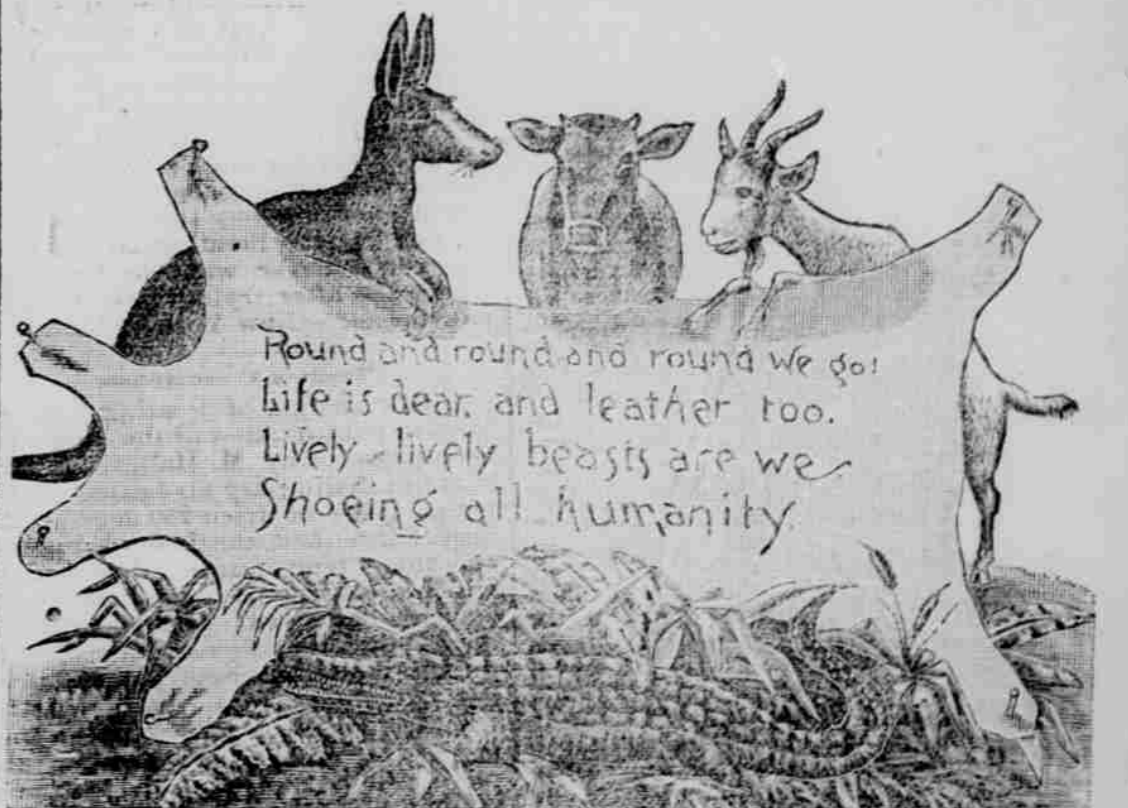 Round and round and round we go!
Life is dear, and leather too.
Lively - lively beasts are we
Shoeing all humanity.